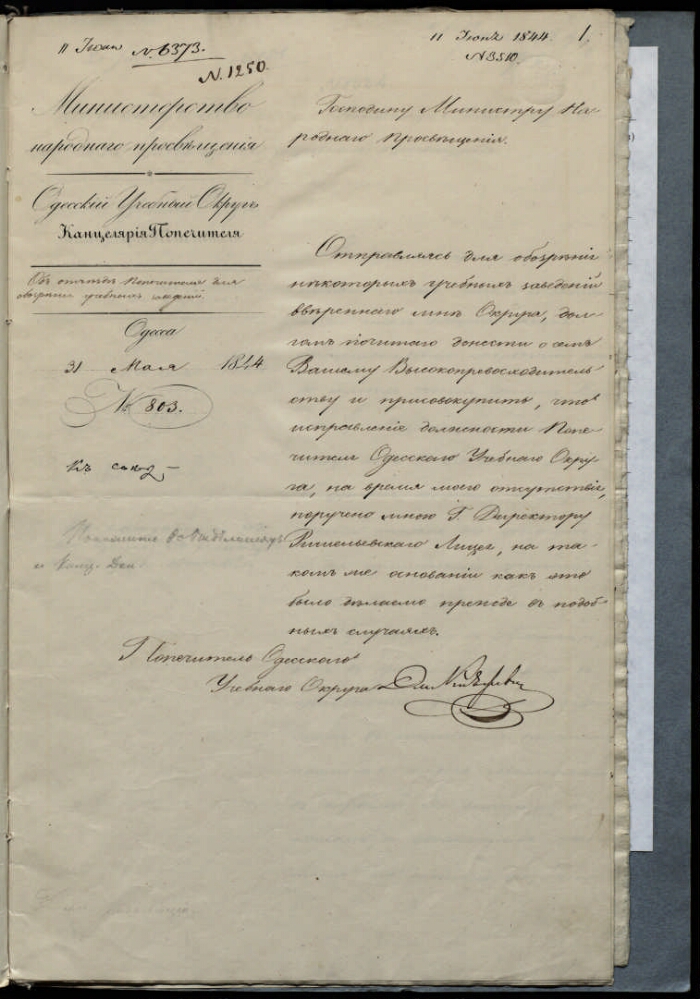 11 Іюня № 6373.
№ 1250.
11 Іюня 1844
№ 3510.
1.
Министерство
народнаго просвѣщенія
Одесскій Учебный Округъ
Канцелярія Попечителя
Объ отъѣздѣ Попечителя для
обозрѣнія учебныхъ заведеній.
Одесса
31 Мая 1844
№ 803.
Господину Министру На-
роднаго Просвѣщенія.
Отправляясь для обозрѣнія
нѣкоторыхъ учебныхъ заведеній
ввѣреннаго мнѣ Округа, дол-
гомъ почитаю донести о семъ
Вашему Высокопревосходитель-
ству и присовокупить, что
исправленіе должности Попе-
чителя Одесскаго Учебнаго Окру-
га, на время моего отсутствія,
поручено мною Г. Директору
Ришельевскаго Лицея, на та-
комъ же основаніи какъ это
было дѣлаемо прежде въ подоб-
ныхъ случаяхъ.
Попечитель Одесскаго
Учебнаго Округа